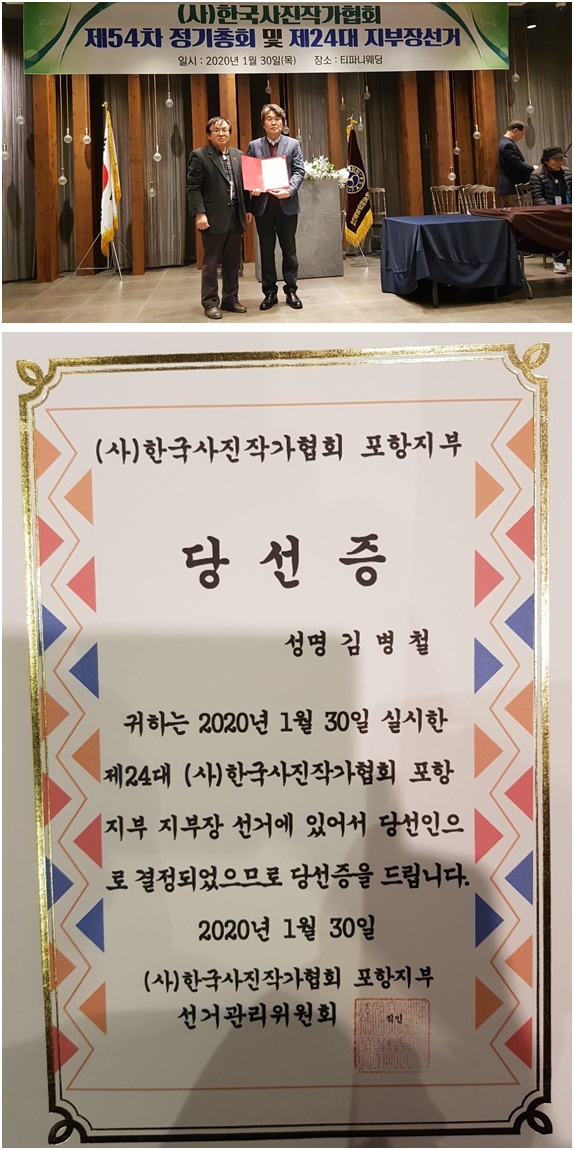 (사)한국사진작가협회
제54차 정기총회 및 제24대 지부장선거
일시 : 2020년 1월 30일(목) 장소 : 티파니웨딩
(사)한국사진작가협회 포항지부
당선증
성명 김병철
귀하는 2020년 1월 30일 실시한
제24대 (사)한국사진작가협회 포항
지부 지부장 선거에 있어서 당선인으
로 결정되었으므로 당선증을 드립니다.
2020년 1월 30일
(사)한국사진작가협회 포항지부
선거관리위원회
직인